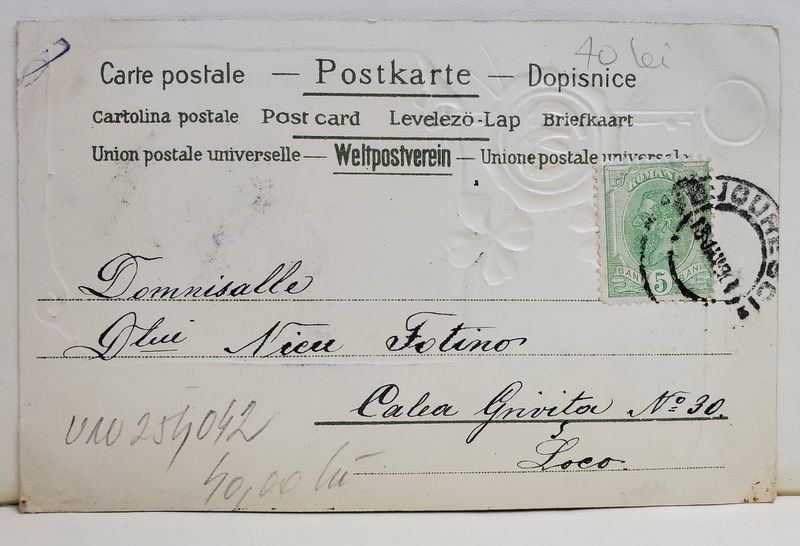 40 lei
Carte postale — Postkarte — Dopisnice
Cartolina postale Post card Levelezö-Lap Briefkaart
Union postale universelle — Weltpostverein — Unione postale universale
ROMANIA
BANI 5 BANI
Domnisalle
Dlui Nicu Fotino
Calea Griviţa No 30.
Loco.
40,00 lei